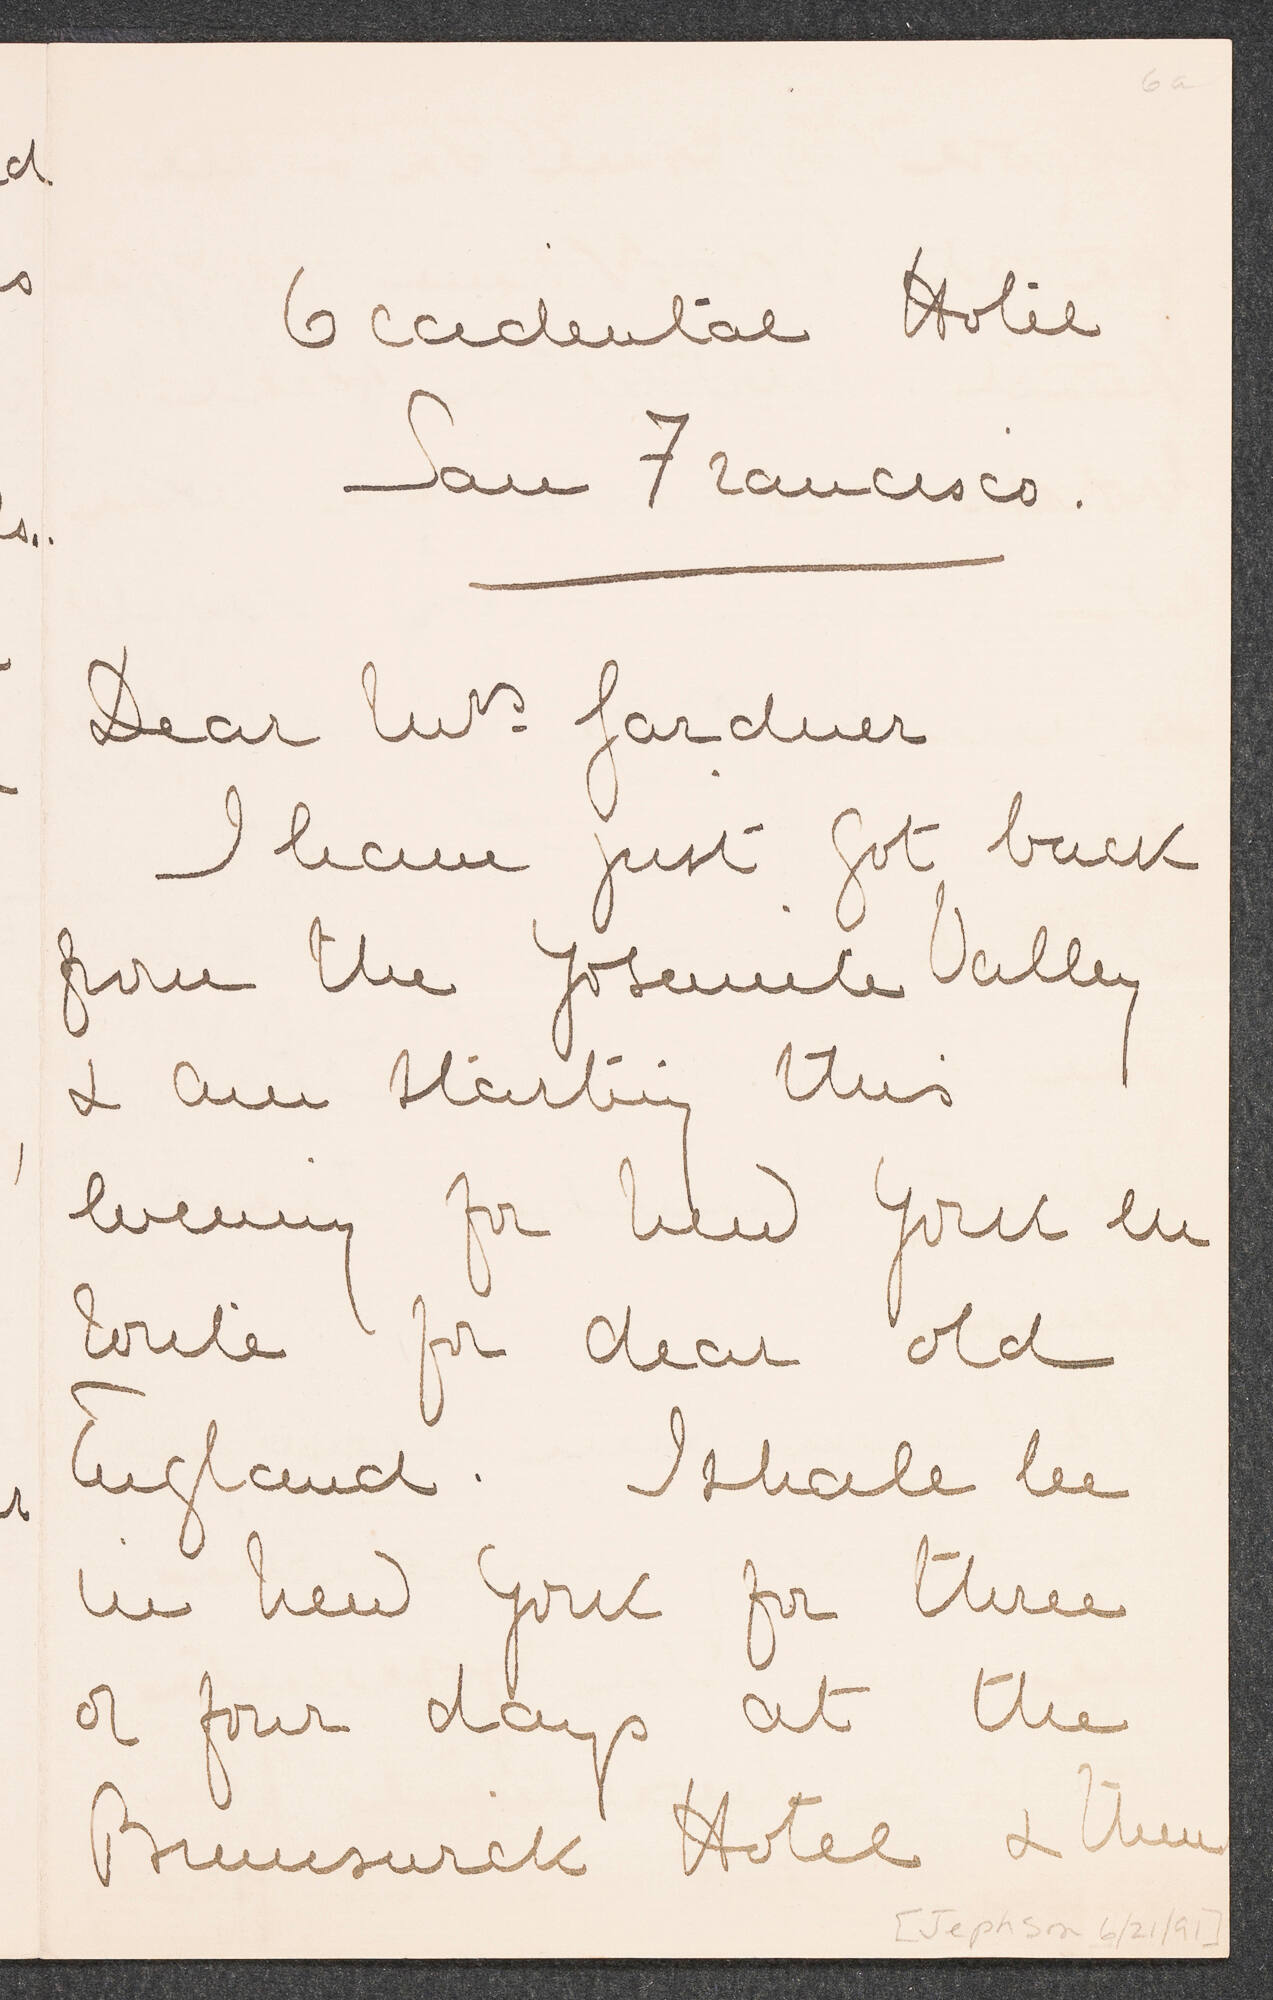 6a
Occidental Hotel
San Francisco.
Dear Mrs. Gardner
I have just got back
from the Yosemite Valley
& am starting this
evening for New York en
route for dear old
England. I shall be
in New York for three
or four days at the
Brunswick Hotel & then
[Jephson 6/21/91]